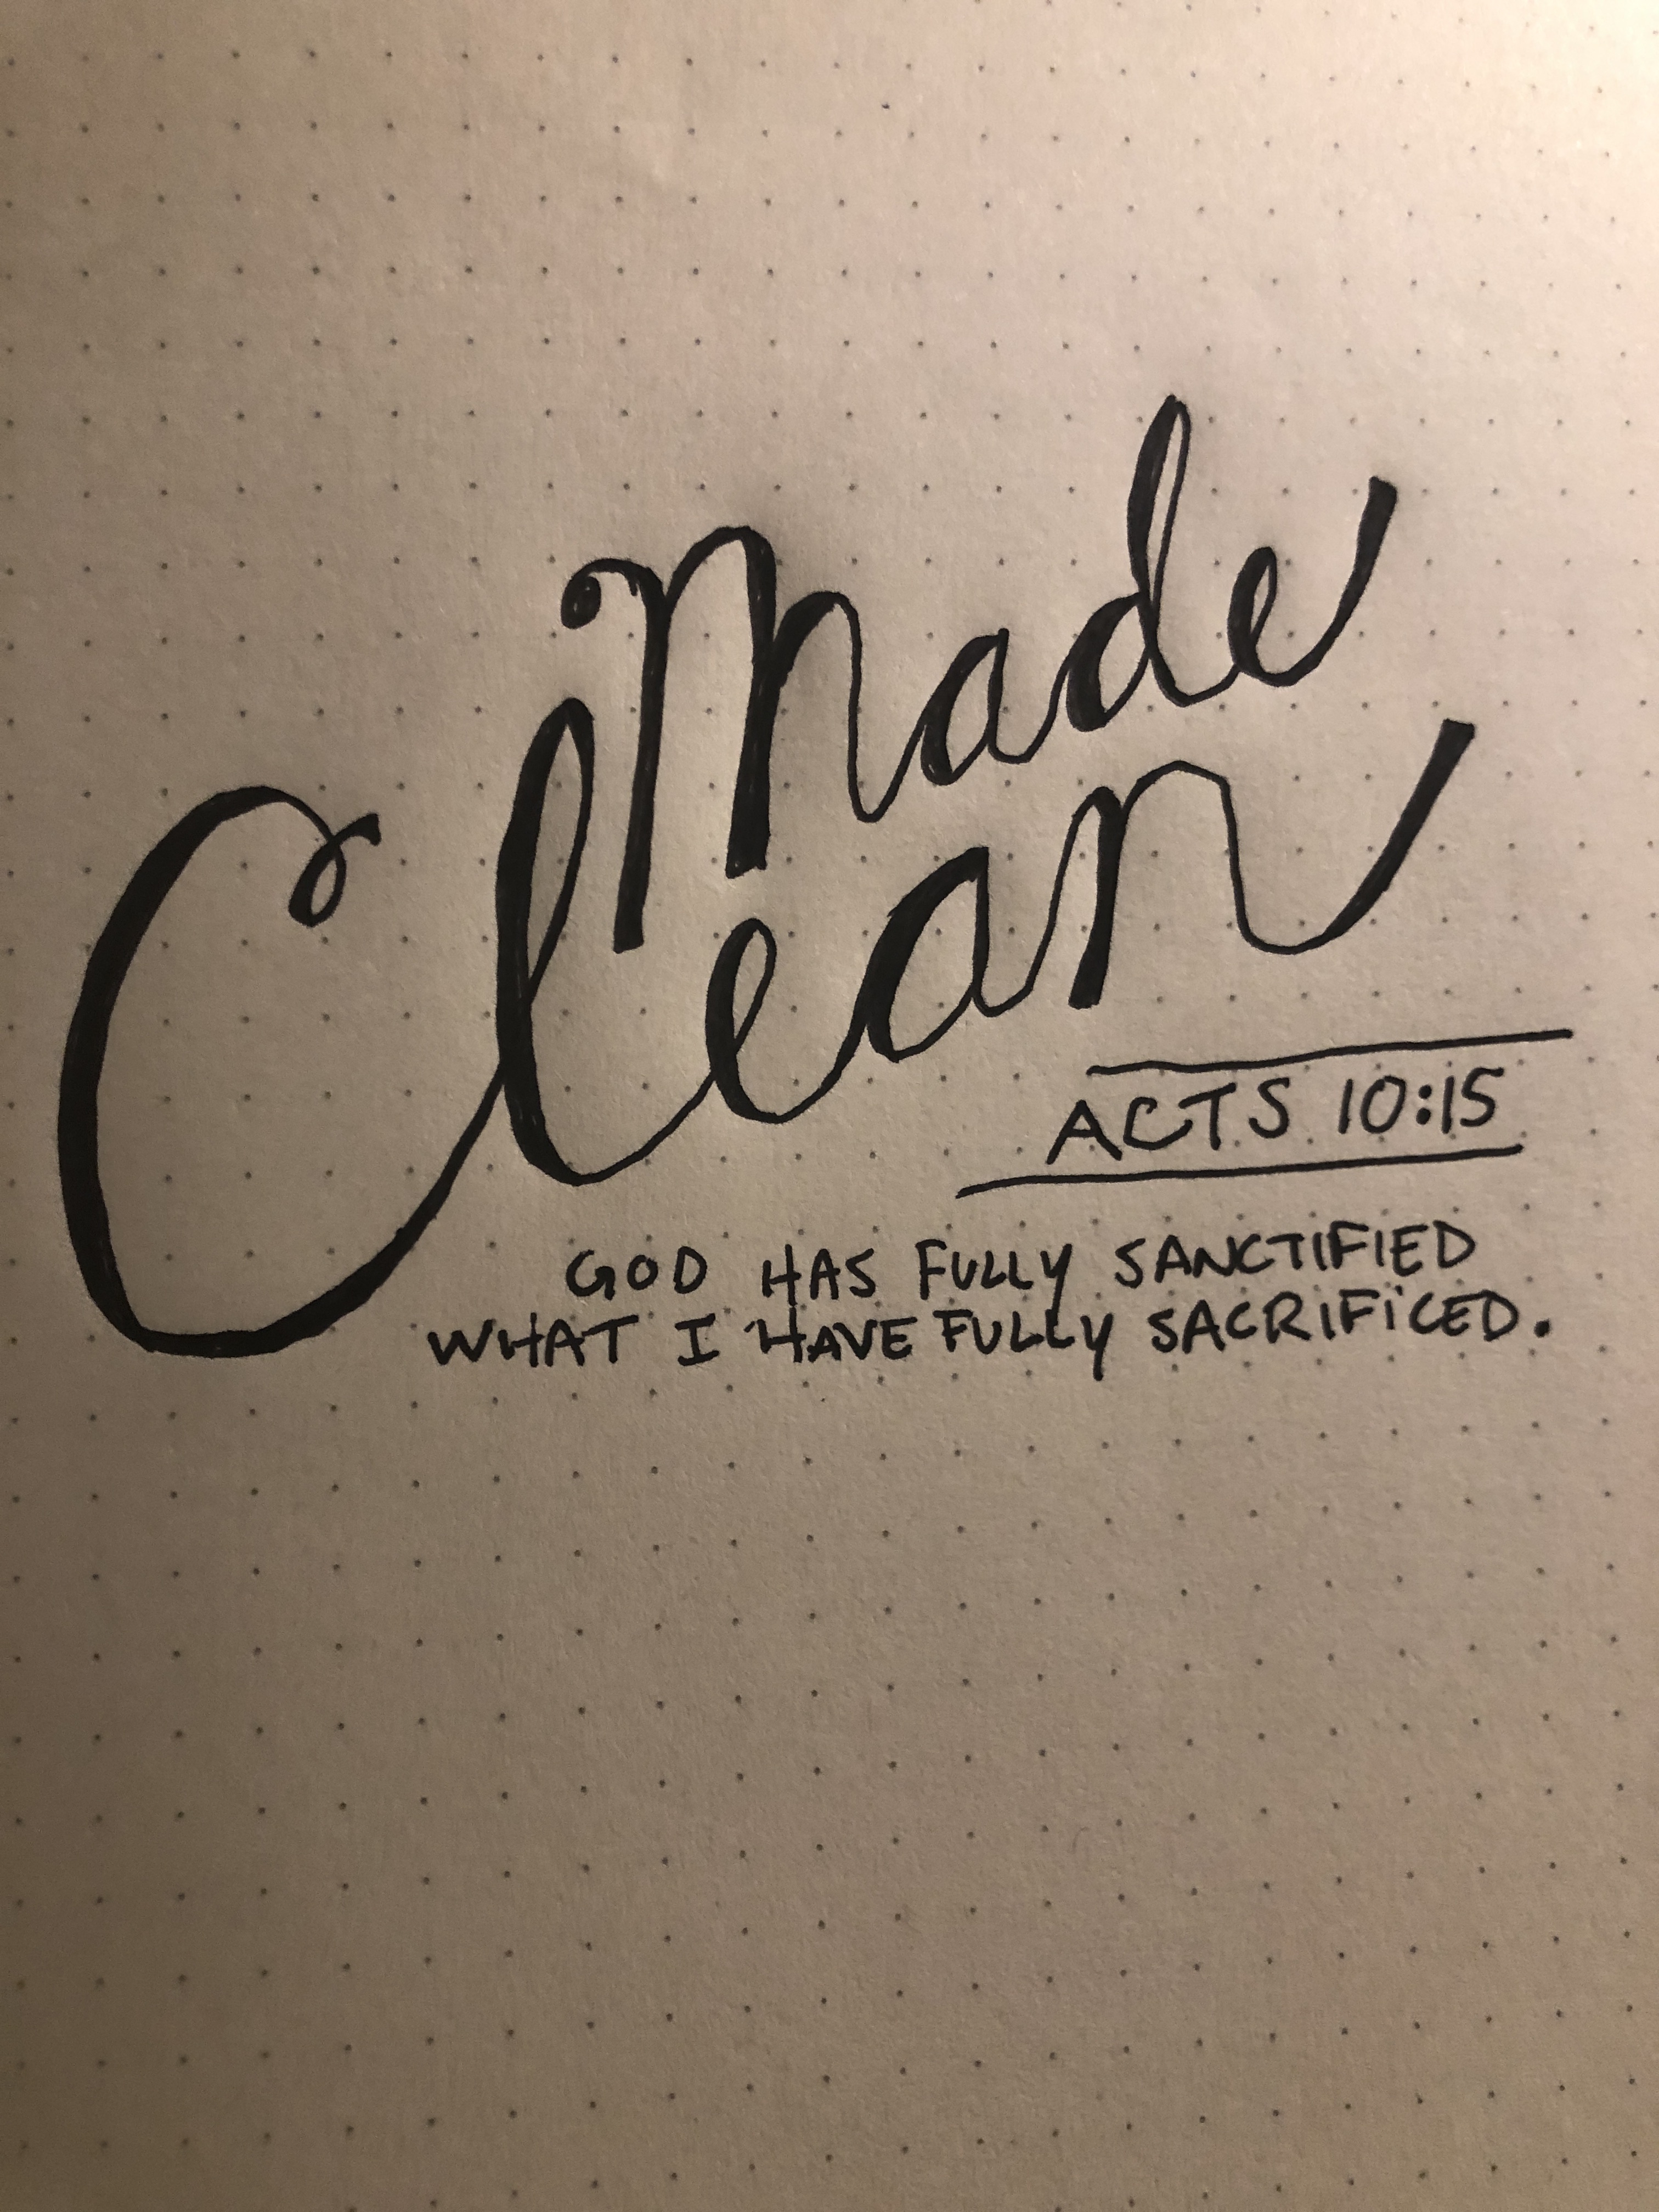 Made
Clean
ACTS 10:15
GOD HAS FULLY SANCTIFIED
WHAT I HAVE FULLY SACRIFICED.